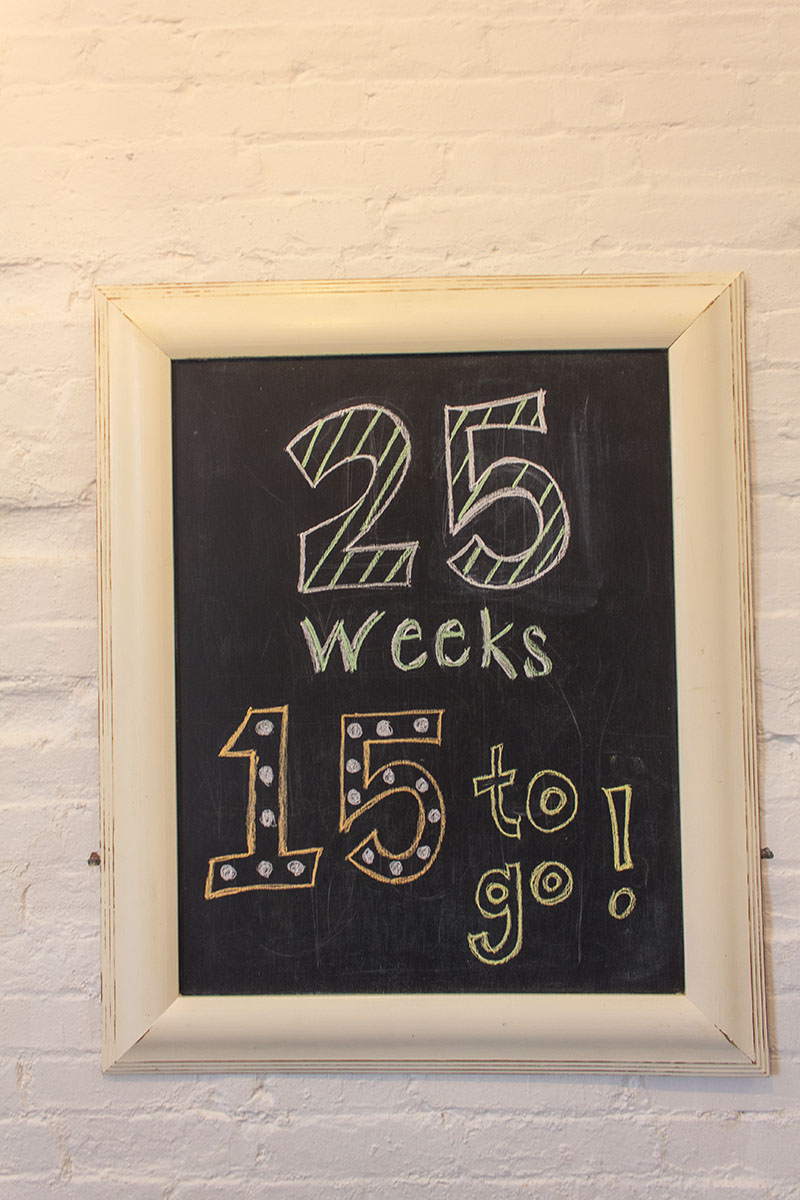 25
weeks
15 to
go!